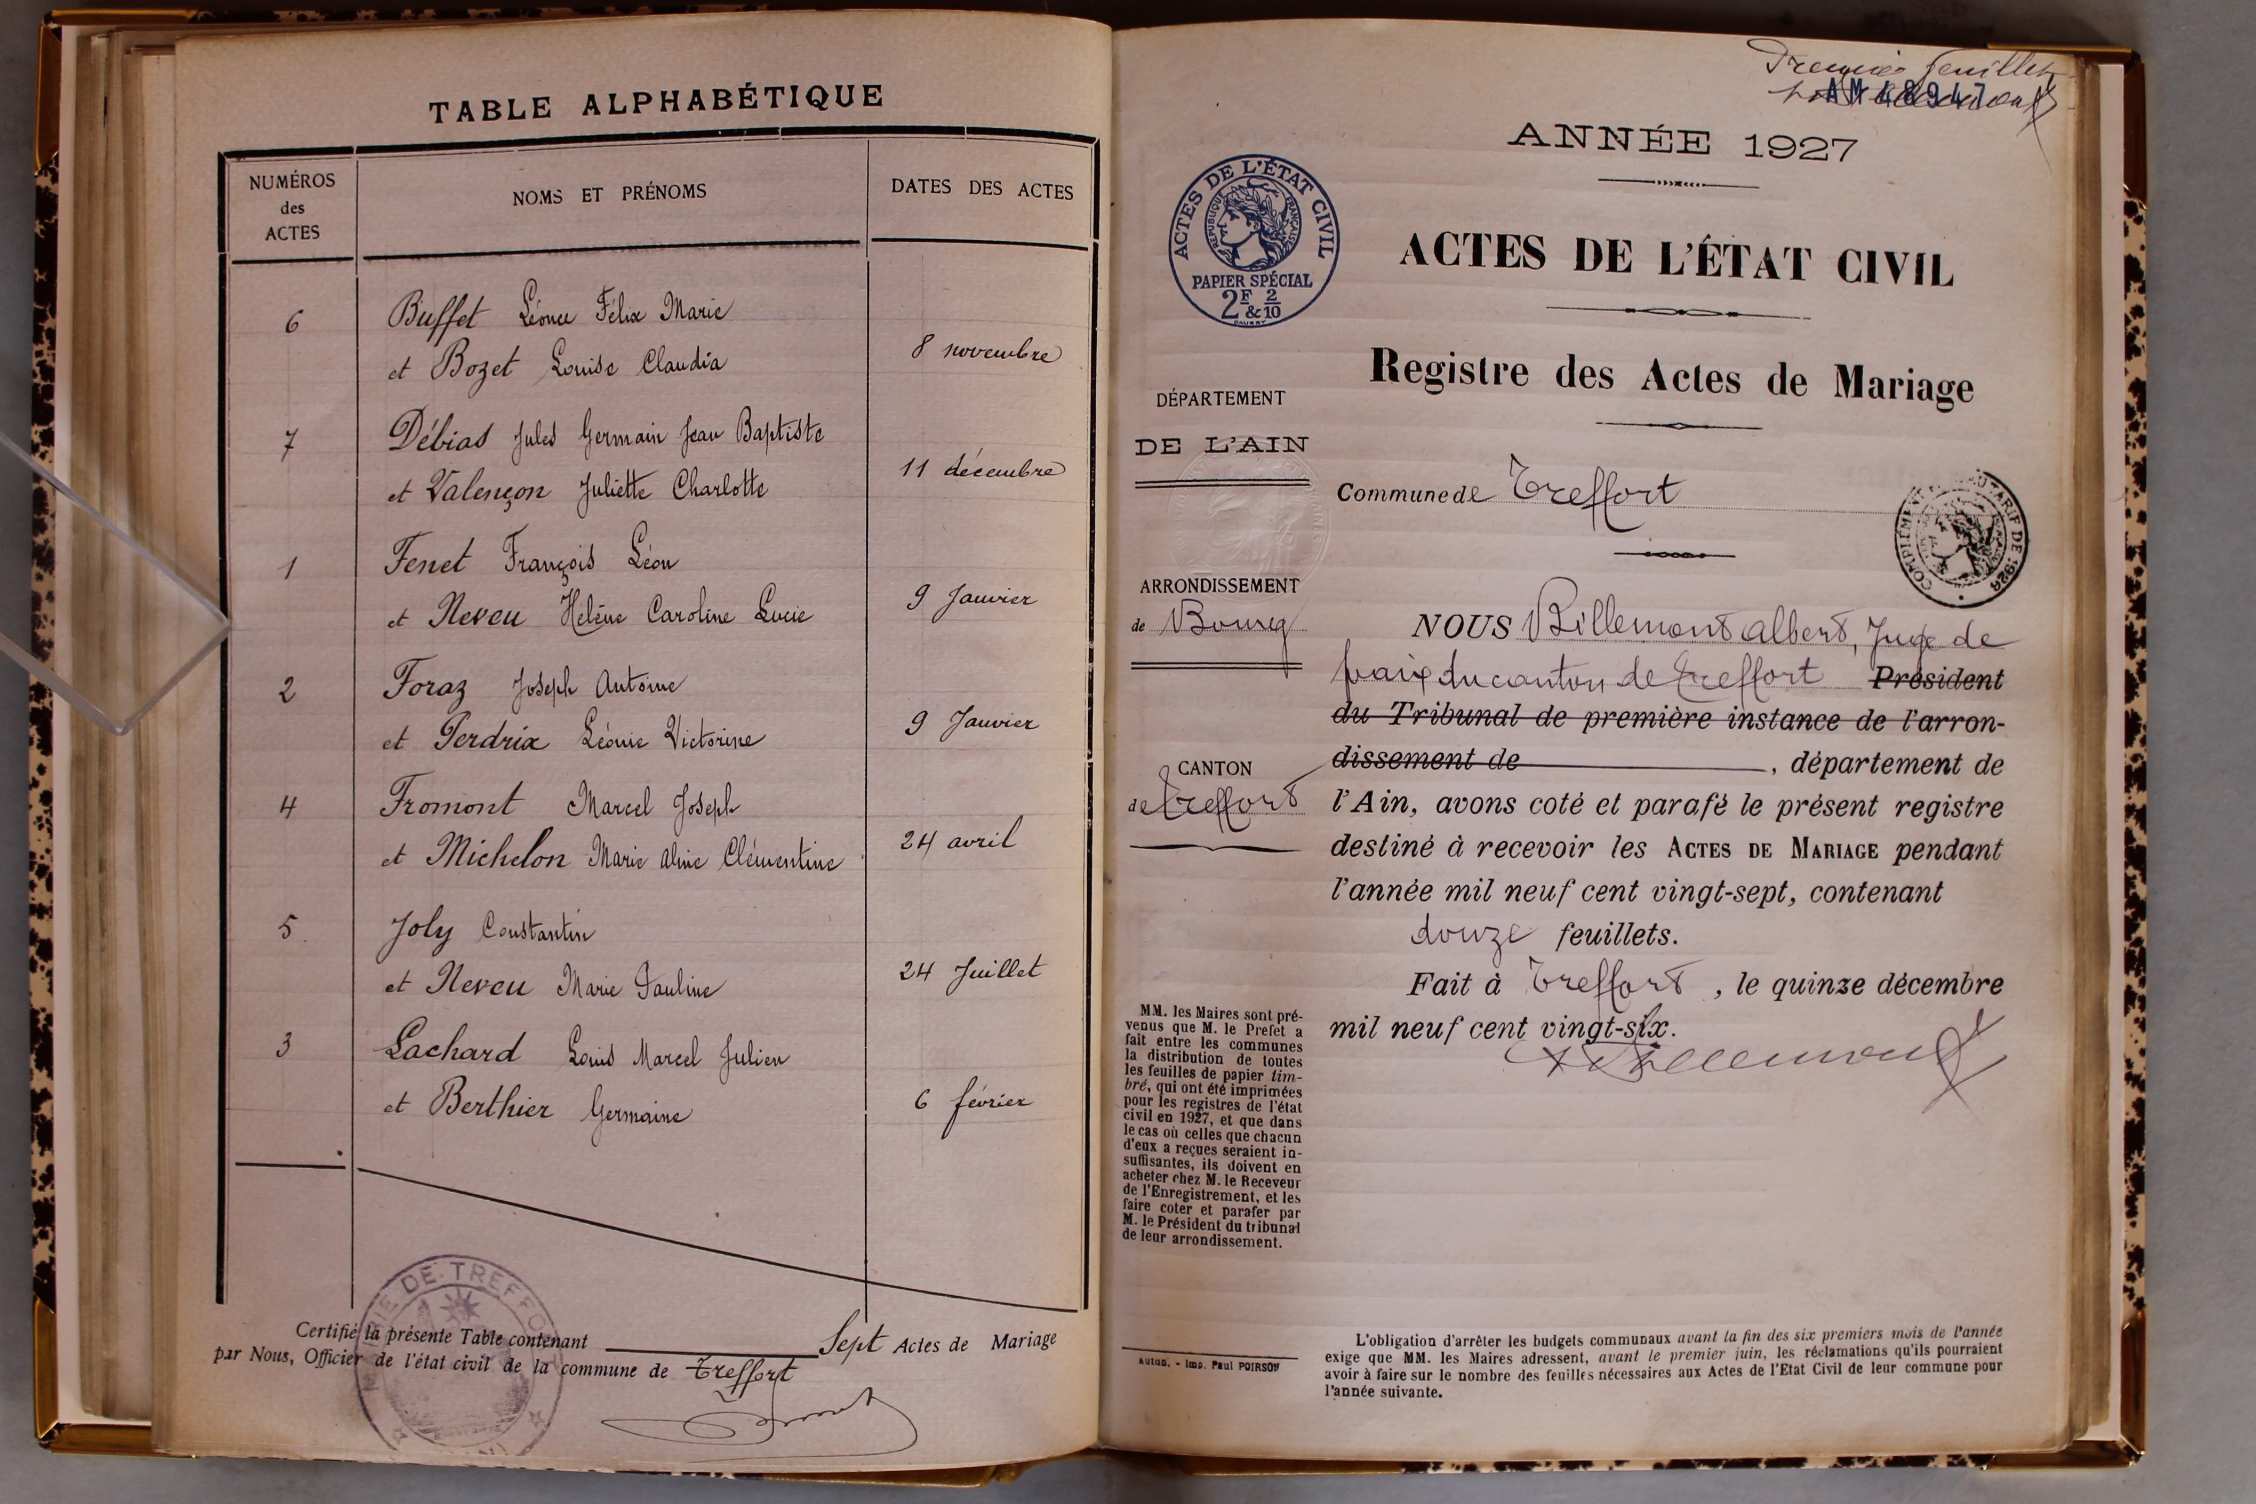 TABLE ALPHABÉTIQUE
NUMÉROS
des
ACTES
NOMS ET PRÉNOMS
DATES DES ACTES
6 Buffet Léonce Félix Marie
et Bozet Louise Claudia 8 novembre
7 Débias Jules Germain Jean Baptiste
et Valençon Juliette Charlotte 11 décembre
1 Fenet François Léon
et Neveu Helène Caroline Lucie 9 Janvier
2 Foraz Joseph Antoine
et Perdrix Léonie Victorine 9 Janvier
4 Fromont Marcel Joseph
et Michelon Marie Aline Clémentine 24 avril
5 Joly Constantin
et Neveu Marie Pauline 24 Juillet
3 Lachard Louis Marcel Julien
et Berthier Germaine 6 février
MAIRIE DE TREFFORT
Certifié la présente Table contenant Sept Actes de Mariage
par Nous, Officier de l'état civil de la commune de Treffort
Premier feuillet
AM 48947
ANNÉE 1927
ACTES DE L'ÉTAT CIVIL
RÉPUBLIQUE FRANÇAISE
PAPIER SPÉCIAL
2F & 2/10
ACTES DE L'ÉTAT CIVIL
Registre des Actes de Mariage
DÉPARTEMENT
DE L'AIN
Commune de Treffort
COMPLÉMENT DU TARIF DE 1926
ARRONDISSEMENT
de Bourg
CANTON
de Treffort
NOUS Billemont Albert, Juge de
paix du canton de Treffort Président
du Tribunal de première instance de l'arron-
dissement de , département de
l'Ain, avons coté et parafé le présent registre
destiné à recevoir les ACTES DE MARIAGE pendant
l'année mil neuf cent vingt-sept, contenant
douze feuillets.
Fait à Treffort, le quinze décembre
mil neuf cent vingt-six.
Billemont
MM. les Maires sont pré-
venus que M. le Prefet a
fait entre les communes
la distribution de toutes
les feuilles de papier tim-
bré, qui ont été imprimées
pour les registres de l'état
civil en 1927, et que dans
le cas où celles que chacun
d'eux a reçues seraient in-
suffisantes, ils doivent en
acheter chez M. le Receveur
de l'Enregistrement, et les
faire coter et parafer par
M. le Président du tribunal
de leur arrondissement.
Autun. - Imp. Paul POIRSON
L'obligation d'arrêter les budgets communaux avant la fin des six premiers mois de l'année
exige que MM. les Maires adressent, avant le premier juin, les réclamations qu'ils pourraient
avoir à faire sur le nombre des feuilles nécessaires aux Actes de l'Etat Civil de leur commune pour
l'année suivante.